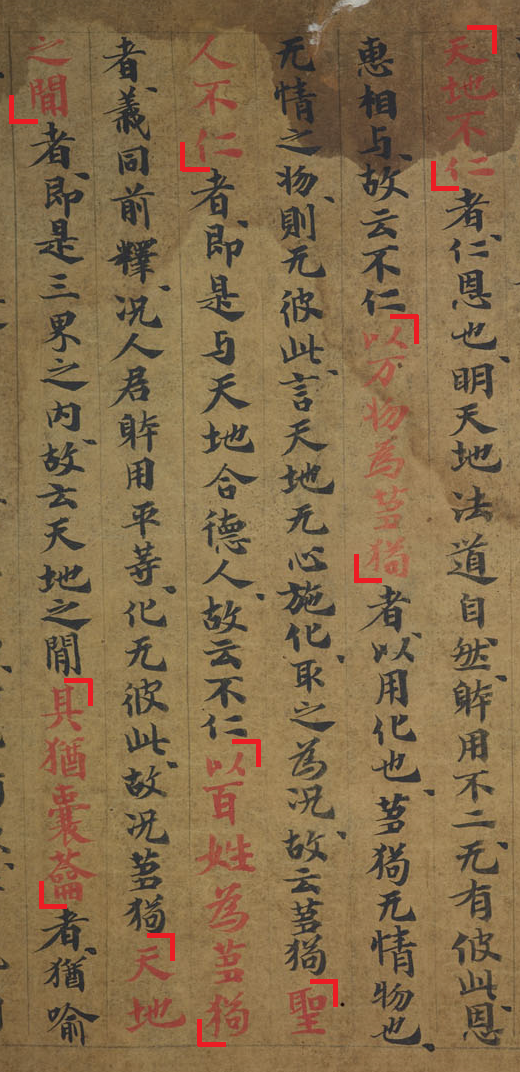 天地不仁者仁恩也明天地法道自然躰用不二无有彼此恩
惠相与故云不仁以万物為芻狗者以用化也芻狗无情物也
无情之物則无彼此言天地无心施化取之為况故云芻狗聖
人不仁者即是与天地合德人故云不仁以百姓為芻狗
者義同前釋况人君躰用平等化无彼此故况芻狗天地
之間者即是三界之内故云天地之間其猶橐籥者猶喻